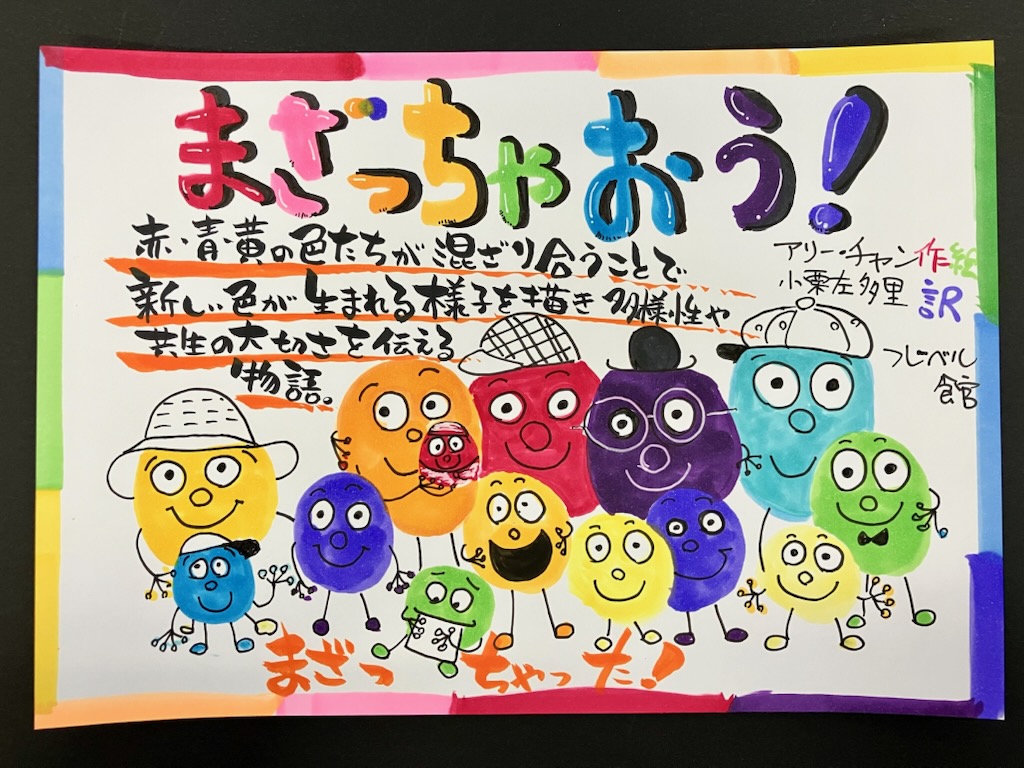 まざっちゃおう!
赤・青・黄の色たちが混ざり合うことで
新しい色が生まれる様子を描き多様性や
共生の大切さを伝える
物語。
アリー・チャン作絵
小栗左多里訳
フレーベル
館
まざっちゃった!